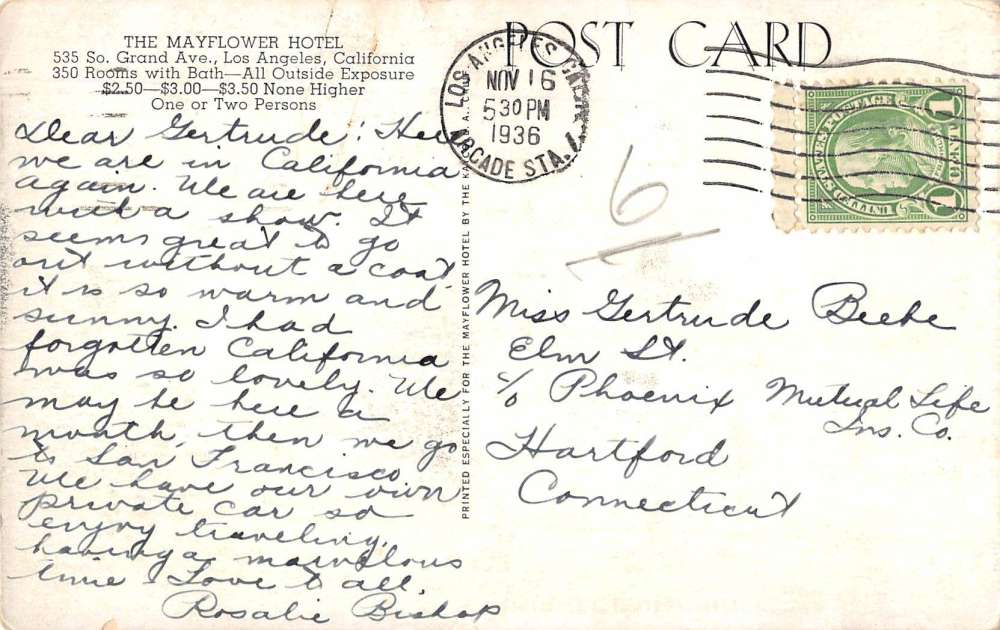 THE MAYFLOWER HOTEL
535 So. Grand Ave., Los Angeles, California
350 Rooms with Bath—All Outside Exposure
$2.50—$3.00—$3.50 None Higher
One or Two Persons
POST CARD
LOS ANGELES, CALIF.
NOV 16
530 PM
1936
ARCADE STA.
6
Dear Gertrude: Here
we are in California
again. We are here
with a show. It
seems great to go
out without a coat,
it is so warm and
sunny. I had
forgotten California
was so lovely. We
may be here a
month, then we go
to San Francisco
We have our own
private car so
enjoy traveling,
having a marvelous
time - Love to all,
Rosalie Bishop
PRINTED ESPECIALLY FOR THE MAYFLOWER HOTEL BY THE
Miss Gertrude Beebe
Elm St.
c/o Phoenix Mutual Life
Ins. Co.
Hartford
Connecticut